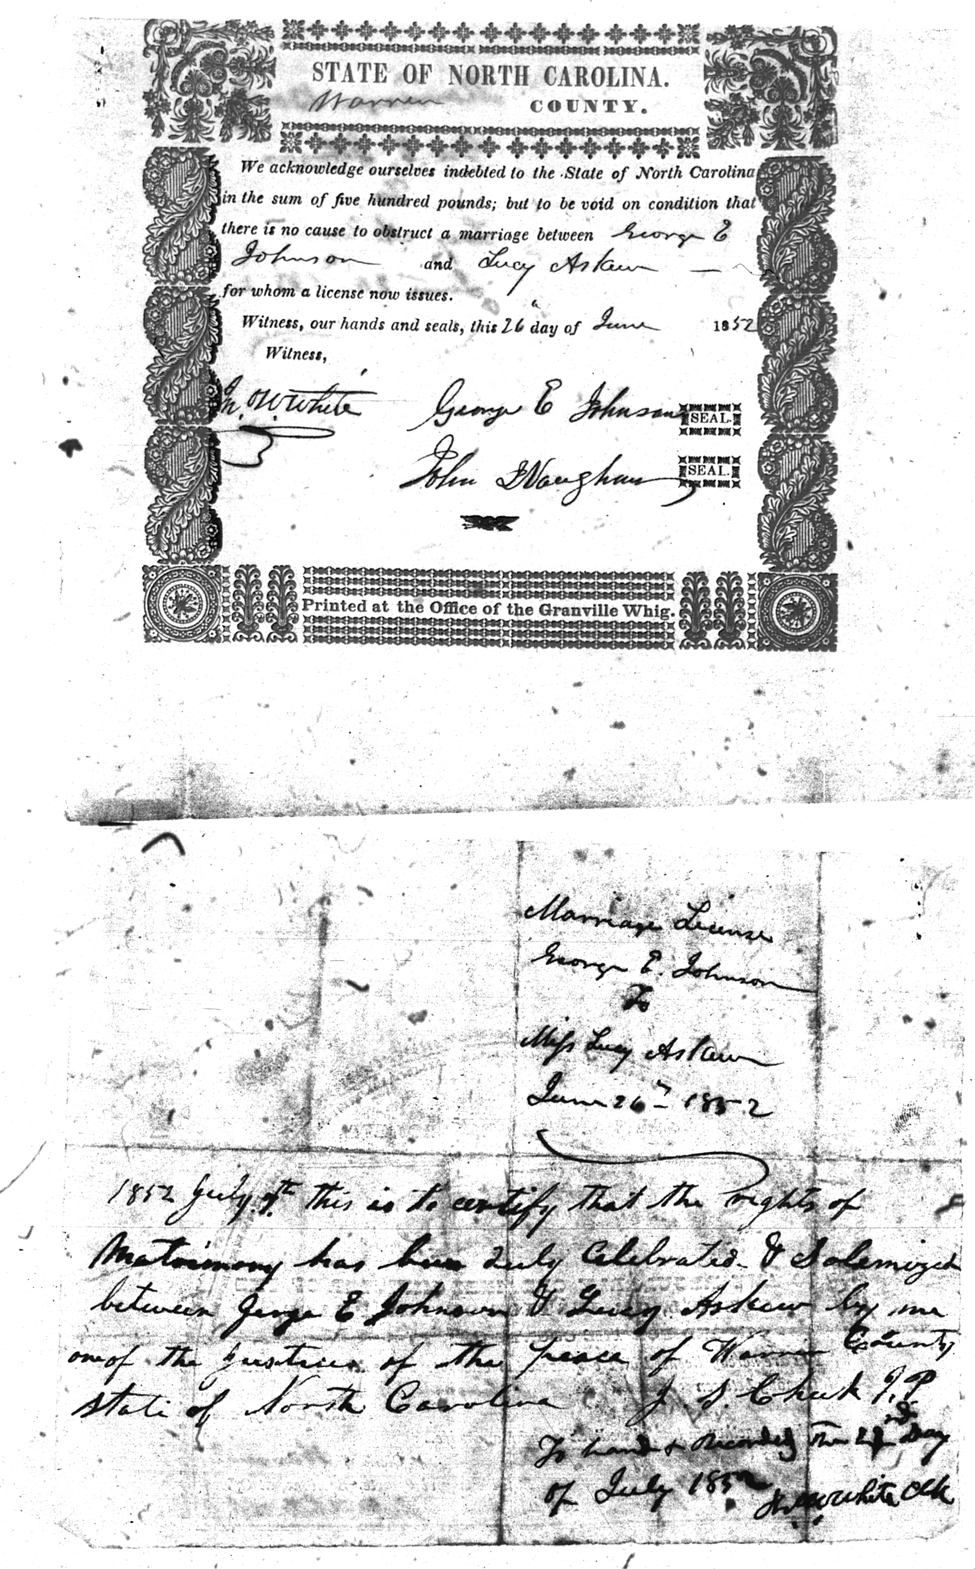 STATE OF NORTH CAROLINA.
Warren COUNTY.
We acknowledge ourselves indebted to the State of North Carolina
in the sum of five hundred pounds; but to be void on condition that
there is no cause to obstruct a marriage between George E
Johnson and Lucy Askew
for whom a license now issues.
Witness, our hands and seals, this 26 day of June 1852
Witness,
Jn. W. White George E Johnson SEAL.
John Vaughan SEAL.
Printed at the Office of the Granville Whig.
Marriage License
George E. Johnson
To
Miss Lucy Askew
June 26th 1852
1852 July 7th this is to certify that the rights of
Matrimony has been duly Celebrated & Solemized
between George E Johnson & Lucy Askew by me
one of the Justices of the peace of Warren County
State of North Carolina J. S. Cheek J.P
To hand & Recorded The Day
of July 1852
White Clk